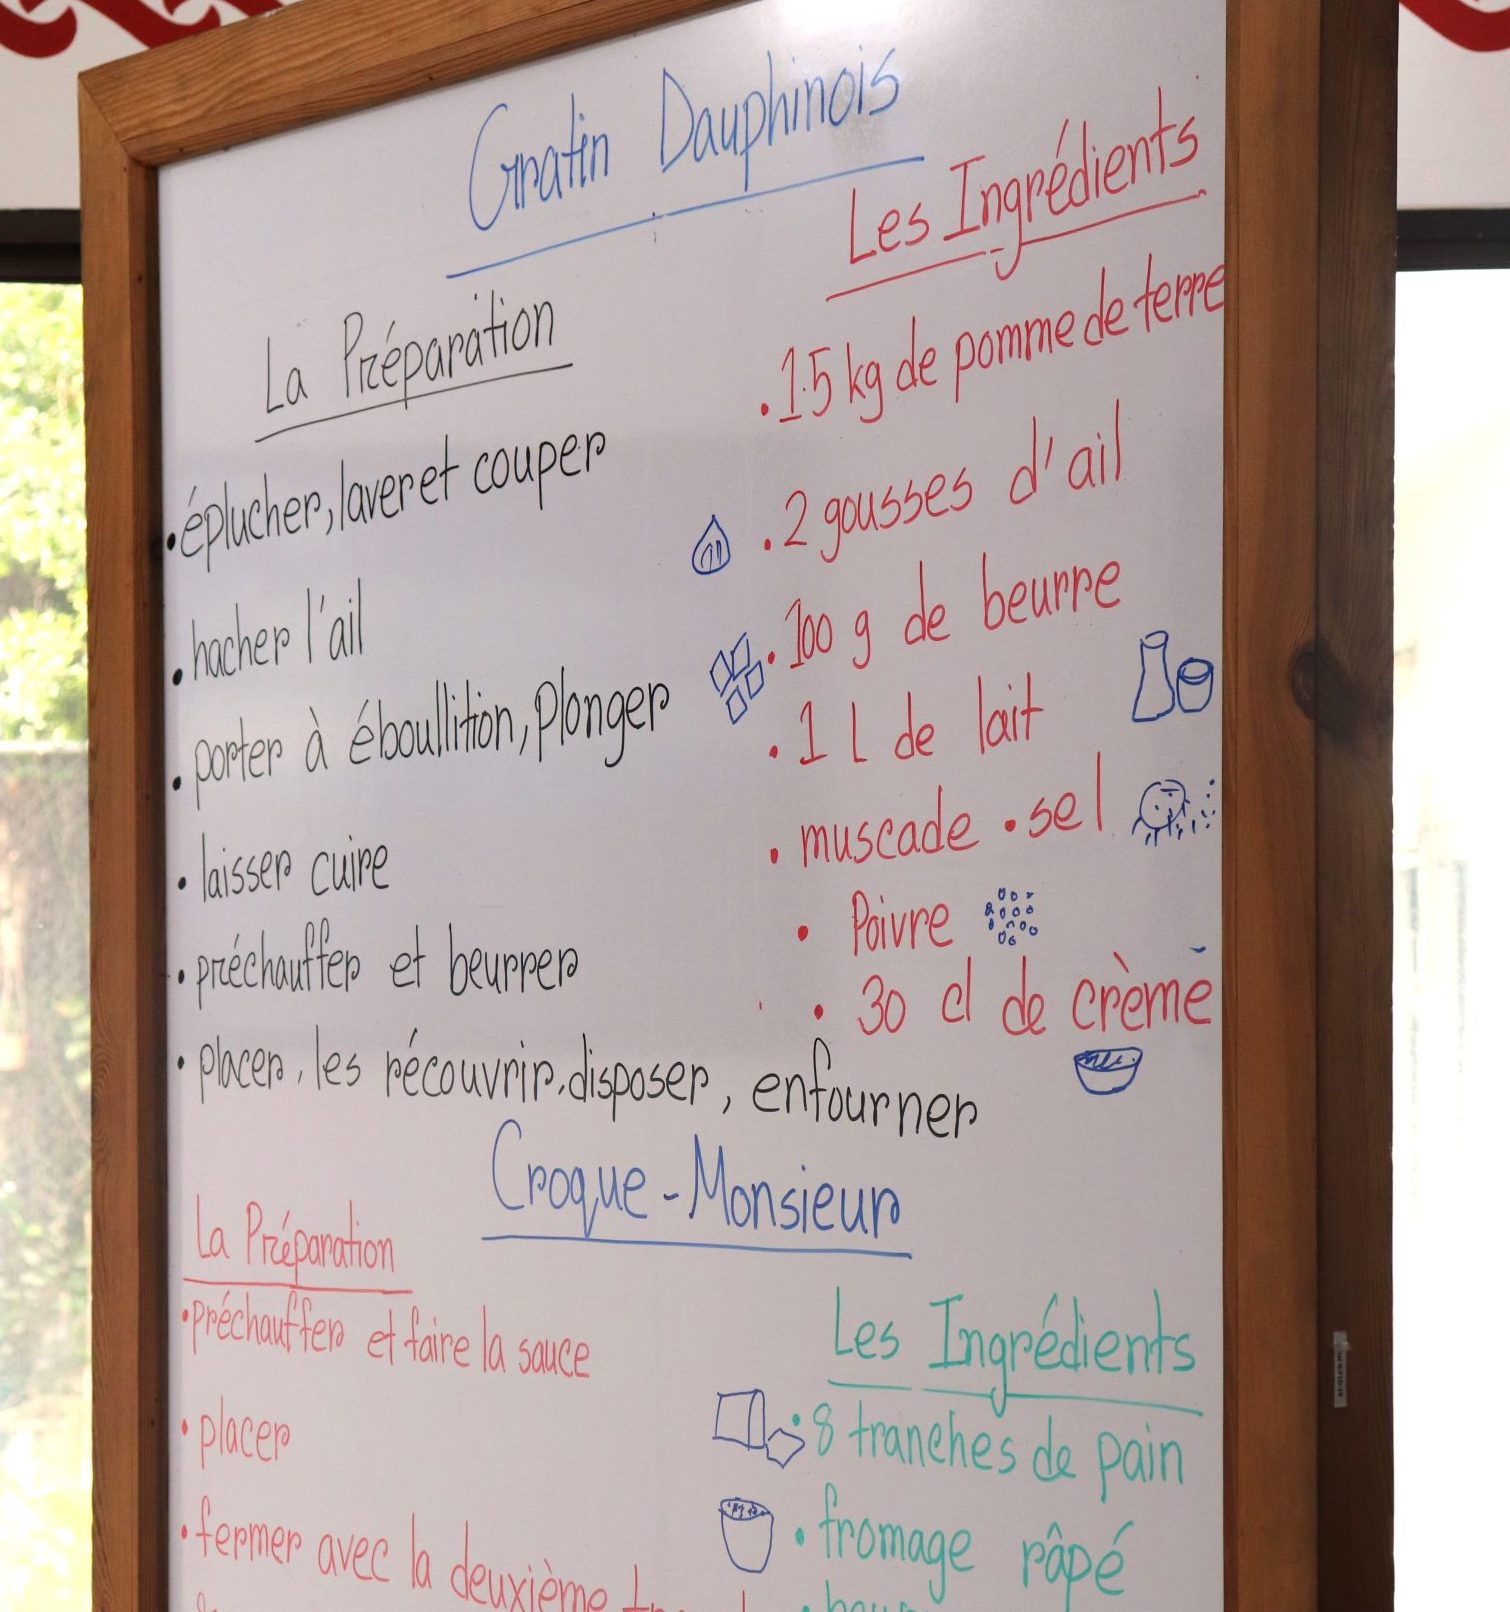 Gratin Dauphinois
La Préparation
• éplucher, laver et couper
• hacher l'ail
• porter à éboullition, Plonger
• laisser cuire
• préchauffer et beurrer
• placer, les récouvrir, disposer, enfourner
Les Ingrédients
• 1.5 kg de pomme de terre
• 2 gousses d'ail
• 100 g de beurre
• 1 l de lait
• muscade • sel
• Poivre
• 30 cl de crème
Croque-Monsieur
La Préparation
• préchauffer et faire la sauce
• placer
• fermer avec la deuxième
Les Ingrédients
• 8 tranches de pain
• fromage râpé